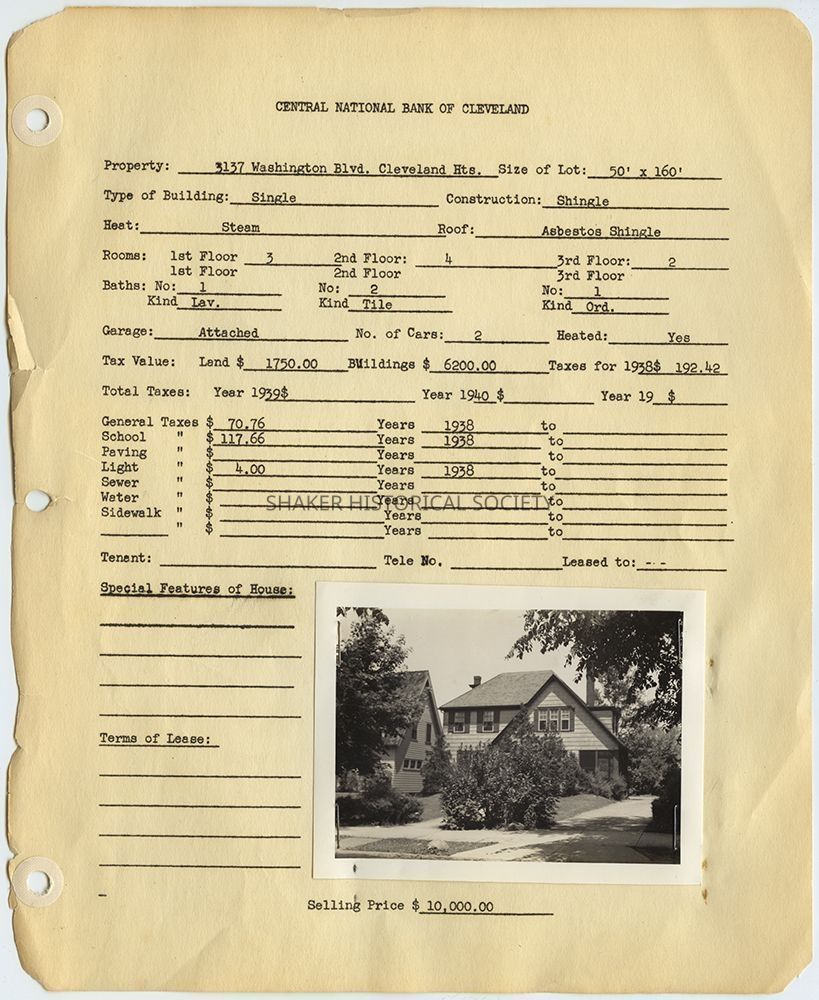 CENTRAL NATIONAL BANK OF CLEVELAND
Property: 3137 Washington Blvd. Cleveland Hts. Size of Lot: 50' x 160'
Type of Building: Single Construction: Shingle
Heat: Steam Roof: Asbestos Shingle
Rooms: 1st Floor 3 2nd Floor: 4 3rd Floor: 2
1st Floor 2nd Floor 3rd Floor
Baths: No: 1 No: 2 No: 1
Kind Lav. Kind Tile Kind Ord.
Garage: Attached No. of Cars: 2 Heated: Yes
Tax Value: Land $ 1750.00 Buildings $ 6200.00 Taxes for 1938$ 192.42
Total Taxes: Year 1939$ Year 1940 $ Year 19 $
General Taxes $ 70.76 Years 1938 to
School " $ 117.66 Years 1938 to
Paving " $ Years to
Light " $ 4.00 Years 1938 to
Sewer " $ Years to
Water " $ Years to
SHAKER HISTORICAL SOCIETY
Sidewalk " $ Years to
" $ Years to
Tenant: Tele No. Leased to: ---
Special Features of House:
Terms of Lease:
Selling Price $ 10,000.00